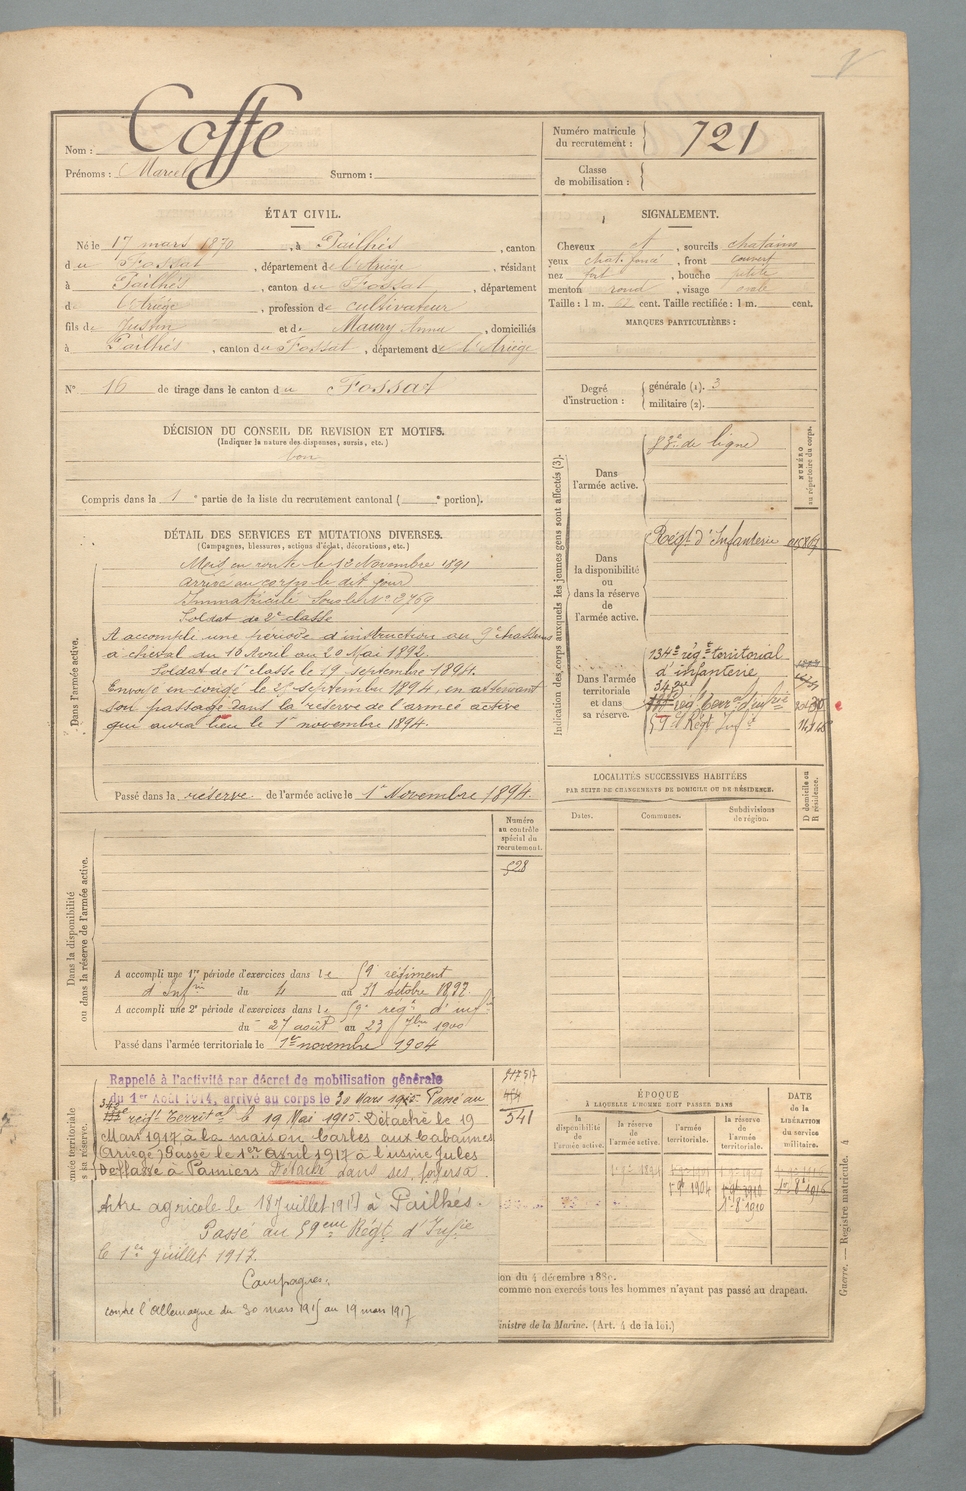 Nom : Coffe
Prénoms : Marcel Surnom :
Numéro matricule du recrutement : 721
Classe de mobilisation :
ÉTAT CIVIL.
Né le 17 mars 1870, à Pailhès, canton
du Fossat, département de l'Ariège, résidant
à Pailhès, canton du Fossat, département
de l'Ariège, profession de cultivateur
fils de Justin et de Maury Anna, domiciliés
à Pailhès, canton du Fossat, département de l'Ariège
N° 16 de tirage dans le canton du Fossat
SIGNALEMENT.
Cheveux et, sourcils chatains
yeux chat. foncé, front couvert
nez fort, bouche petite
menton rond, visage ovale
Taille : 1 m. cent. Taille rectifiée : 1 m. cent.
MARQUES PARTICULIÈRES :
Degré d'instruction : générale (1). 3
militaire (2).
DÉCISION DU CONSEIL DE REVISION ET MOTIFS.
(Indiquer la nature des dispenses, sursis, etc.)
bon
Compris dans la 1e partie de la liste du recrutement cantonal ( e portion).
DÉTAIL DES SERVICES ET MUTATIONS DIVERSES.
(Campagnes, blessures, actions d'éclat, décorations, etc.)
Dans l'armée active.
Mis en route le 10 Novembre 1891
arrivé au corps le dit jour
Immatriculé sous le N° 3769
Soldat de 2e classe
A accompli une période d'instruction au 9e chasseurs
à cheval du 10 Avril au 20 Mai 1892
Soldat de 1e classe le 19 septembre 1894.
Envoyé en congé le 25 septembre 1894, en attendant
son passage dans la réserve de l'armée active
qui aura lieu le 1er novembre 1894.
Passé dans la réserve de l'armée active le 1er Novembre 1894.
Indication des corps auxquels les jeunes gens sont affectés (3).
NUMÉRO au répertoire du corps.
Dans l'armée active.
de ligne
Dans la disponibilité ou dans la réserve de l'armée active.
Régt d'Infanterie
Dans l'armée territoriale et dans sa réserve.
134e régt territorial
d'infanterie
342e
régt terral d'infrie
59e Régt Infie
LOCALITÉS SUCCESSIVES HABITÉES
PAR SUITE DE CHANGEMENTS DE DOMICILE OU DE RÉSIDENCE.
Dates. Communes. Subdivisions de région. D domicile ou R résidence.
Numéro au contrôle spécial du recrutement.
528
Dans la disponibilité ou dans la réserve de l'armée active.
A accompli une 1re période d'exercices dans le 59e régiment
d'Infrie du 4 au 31 octobre 1897.
A accompli une 2e période d'exercices dans le 59e régt d'inf
du 27 août au 23 7bre 1900
Passé dans l'armée territoriale le 1er novembre 1904
Rappelé à l'activité par décret de mobilisation générale
du 1er Août 1914, arrivé au corps le 30 Mars 1915 Passé au
342e régt Territal le 19 Mai 1915. Détaché le 19
Mars 1917 à la maison Carles aux Cabannes
(Ariège) Passé le 1er Avril 1917 à l'usine Jules
Deffarre à Pamiers Détaché dans ses foyers à
541
titre agricole le 18 juillet 1917 à Pailhès.
Passé au 59eme Régt d'Infie
le 1er Juillet 1917.
Campagnes:
contre l'Allemagne du 30 mars 1915 au 19 mars 1917
ÉPOQUE
À LAQUELLE L'HOMME DOIT PASSER DANS
la disponibilité de l'armée active.
la réserve de l'armée active.
l'armée territoriale.
la réserve de l'armée territoriale.
DATE de la LIBÉRATION du service militaire.
1er 9bre 1894
1er 9bre 1904 1er 9bre 1910
1er 8 1910
on du 4 décembre 1889.
comme non exercés tous les hommes n'ayant pas passé au drapeau.
inistre de la Marine. (Art. 4 de la loi.)
Guerre. — Registre matricule. 4